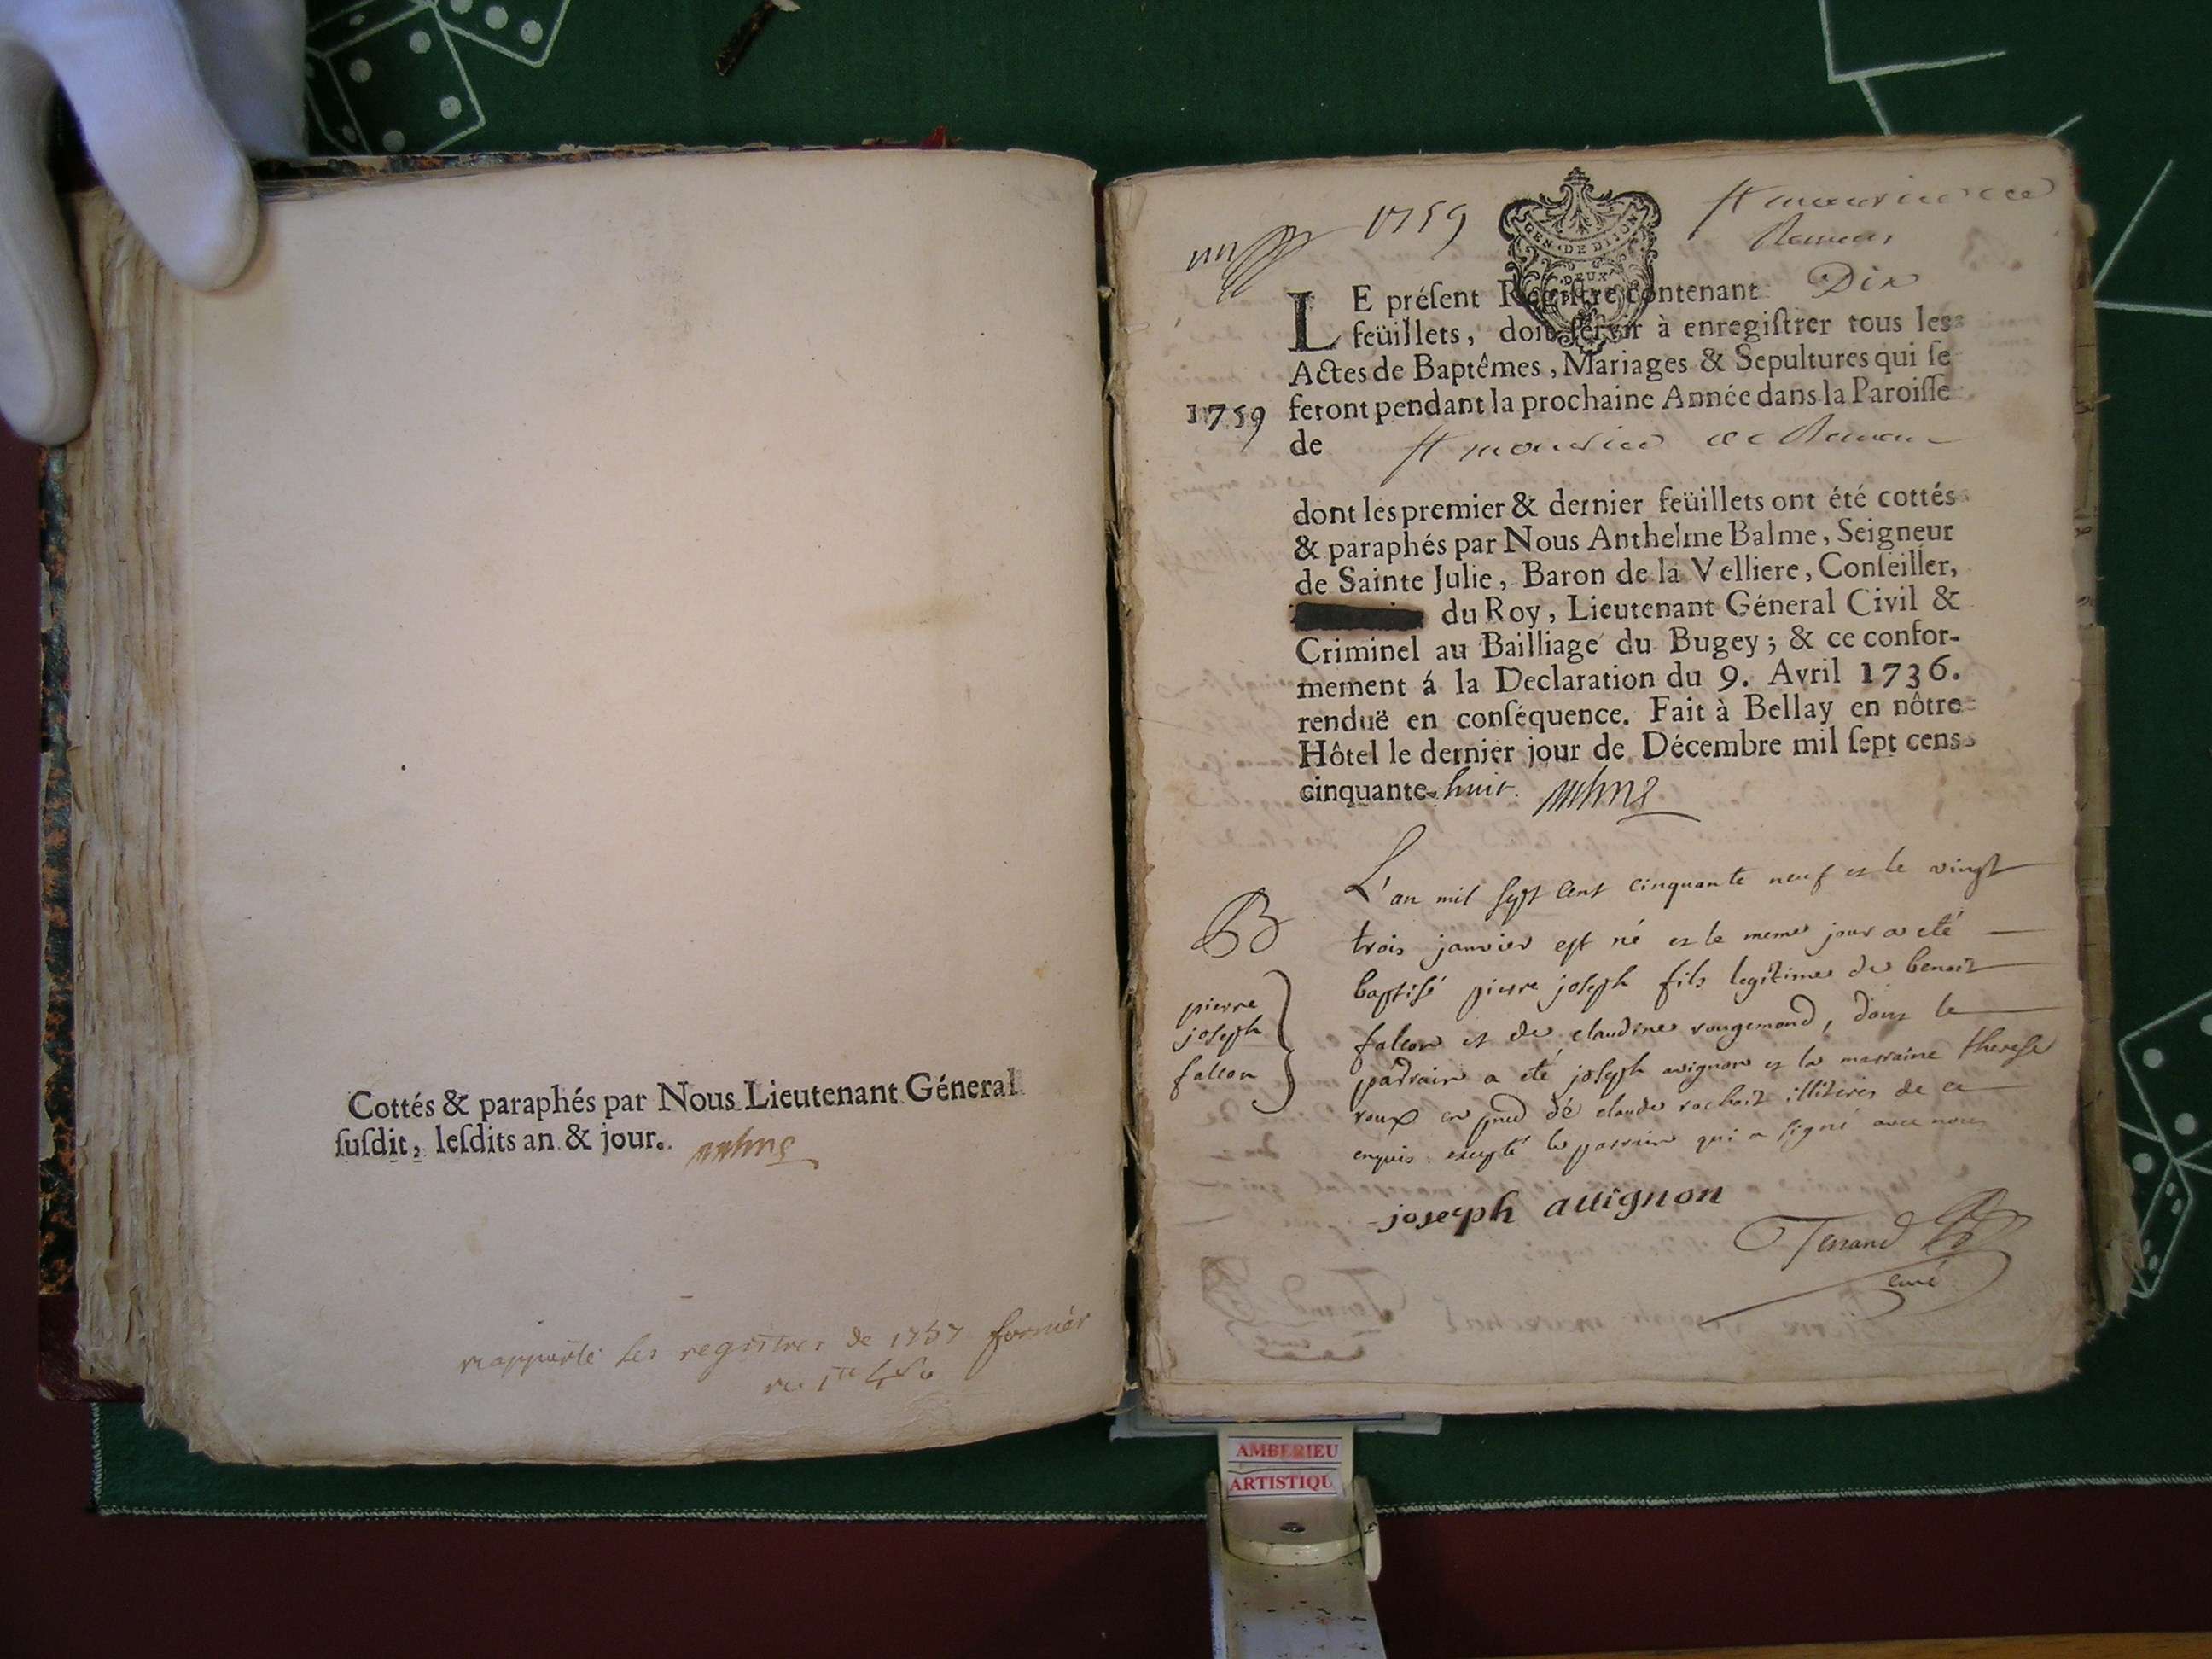 Cottés & paraphés par Nous Lieutenant Géneral
ſuſdit, leſdits an & jour.
rapporté les registres de 1757
1759
GEN · DE DIJON
DEUX
St maurice de
Remens
LE préſent Regiſtre contenant Dix
feüillets, doit ſervir à enregiſtrer tous les
Actes de Baptêmes, Mariages & Sepultures qui ſe
1759 feront pendant la prochaine Année dans la Paroiſſe
de St maurice de Remens
dont les premier & dernier feüillets ont été cottés
& paraphés par Nous Anthelme Balme, Seigneur
de Sainte Julie, Baron de la Velliere, Conſeiller,
du Roy, Lieutenant Géneral Civil &
Criminel au Bailliage du Bugey; & ce confor-
mement á la Declaration du 9. Avril 1736.
renduë en conſéquence. Fait à Bellay en nôtre
Hôtel le dernier jour de Décembre mil ſept cens
cinquante-huit.
L'an mil sept cent cinquante neuf et le vingt
B
trois janvier est né et le meme jour a eté
baptisé pierre joseph fils legitime de benoit
pierre
joseph
falcon
falcon et de claudine rougemond, dont le
parrain a eté joseph avignon et la marraine therese
roux de claude rochait illiteres de ce
enquis excepté le parrain qui a signé avec nous
joseph auignon
Terrand
curé
AMBERIEU
ARTISTIQU